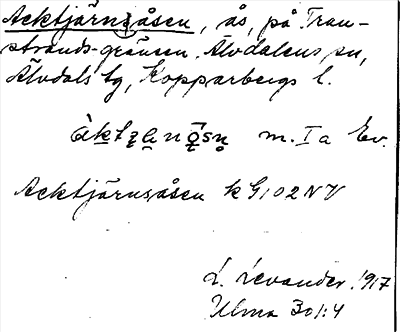 Acktjärnsåsen, ås, på Tran-
strands-gränsen, Älvdalens sn,
Älvdals tg, Kopparbergs l.
m. I a Ev.
Acktjärnsåsen k G102NV
L. Levander. 1917
Ulma 301:4